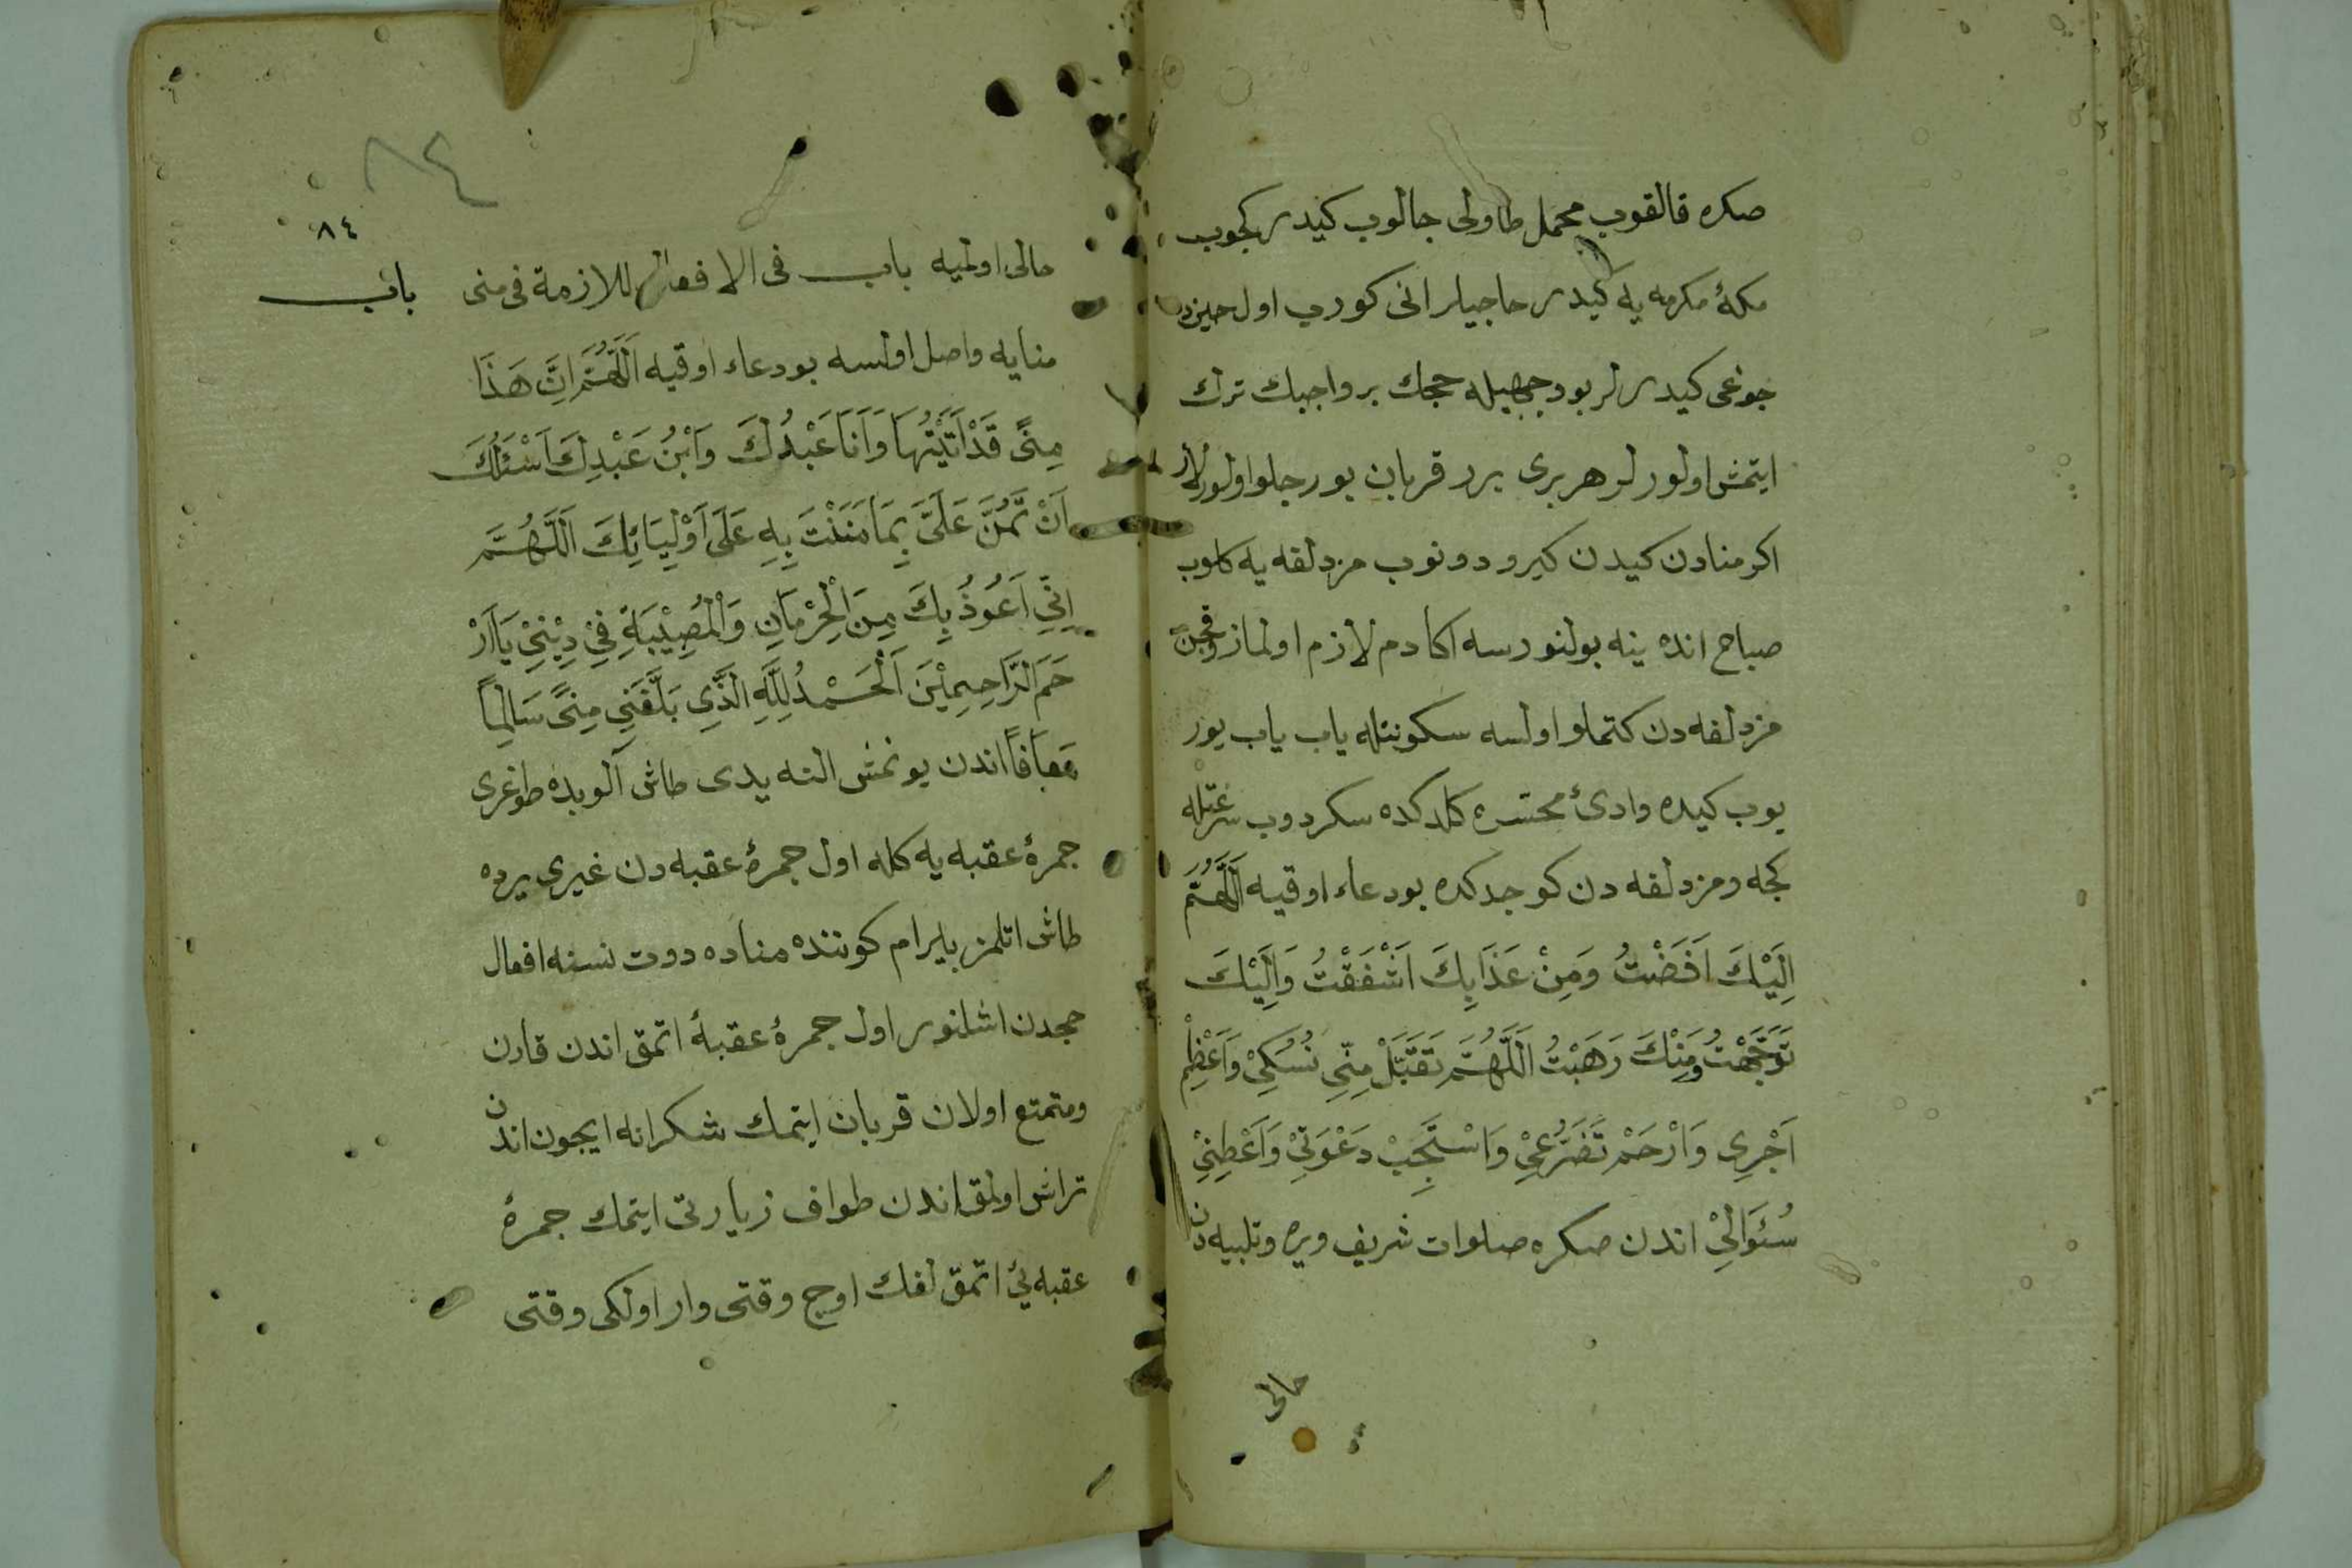 صكره قالقوب محمل طاولى جالوب كيدر كچوب
مكۀ مكرمه يه كيدر حاجيلر انى كورب اول حينده
چوغى كيدرلر بو وجهيله حجك بر واجبك ترك
ايتمش اولورلر هر برى برر قربان بورجلو اولورلار
اكر منادن كيدن كيرو دونوب مزدلفه يه كلوب
صباح انده ينه بولنورسه اكا دم لازم اولماز وقچن
مزدلفه دن كتملو اولسه سكونتله ياب ياب يور
يوب كيده وادئ محسره كلدكده سكردوب سرعتله
كچه ومزدلفه دن كوچدكده بو دعاء اوقيه اَللَّهُمَّ
اِلَيْكَ اَفَضْتُ وَمِنْ عَذَابِكَ اَشْفَقْتُ وَاِلَيْكَ
تَوَجَّهْتُ وَمِنْكَ رَهَبْتُ اَللَّهُمَّ تَقَبَّلْ مِنّٖي نُسُكٖيْ وَاَعْظِمْ
اَجْرٖي وَارْحَمْ تَضَرُّعٖيْ وَاسْتَجِبْ دَعْوَتٖيْ وَاَعْطِنٖيْ
سُئَوَالٖيْ اندن صكره صلوات شريف ويره وتلبيه دن
خالى
٨٤
٨٤
خالى اولميه باب فى الافعال اللازمة فى منى
باب
منايه واصل اولسه بو دعاء اوقيه اَللَّهُمَّ اِنَّ هَذَا
مِنًى قَدْ اَتَيْتُهَا وَاَنَا عَبْدُكَ وَابْنُ عَبْدِكَ اَسْئَلُكَ
اَنْ تَمُنَّ عَلَىَّ بِمَا مَنَنْتَ بِهِ عَلَى اَوْلِيَائِكَ اَللَّهُمَّ
اِنّٖي اَعُوذُ بِكَ مِنَ الْحِرْمَانِ وَالْمُصِيْبَةِ فِيْ دٖيْنٖيْ يَا اَرْ
حَمَ الرَّاحِمِيْنَ اَلْحَمْدُ لِلَّهِ الَّذِى بَلَّغَنِى مِنًى سَالِمًا
مَعَافًا اندن يونمش التە يدى طاش آلوبده طوغرى
جمرۀ عقبه يه كله اول جمرۀ عقبه دن غيرى يرده
طاش اتلمز بايرام كوننده مناده دورت نسنه افعال
حجدن اشلنور اول جمرۀ عقبۀ اتمق اندن قارن
ومتمتع اولان قربان ايتمك شكرانه ايچون اندن
تراش اولمق اندن طواف زيارتى ايتمك جمرۀ
عقبه ئي اتمق لغك اوچ وقتى وار اولكى وقتى